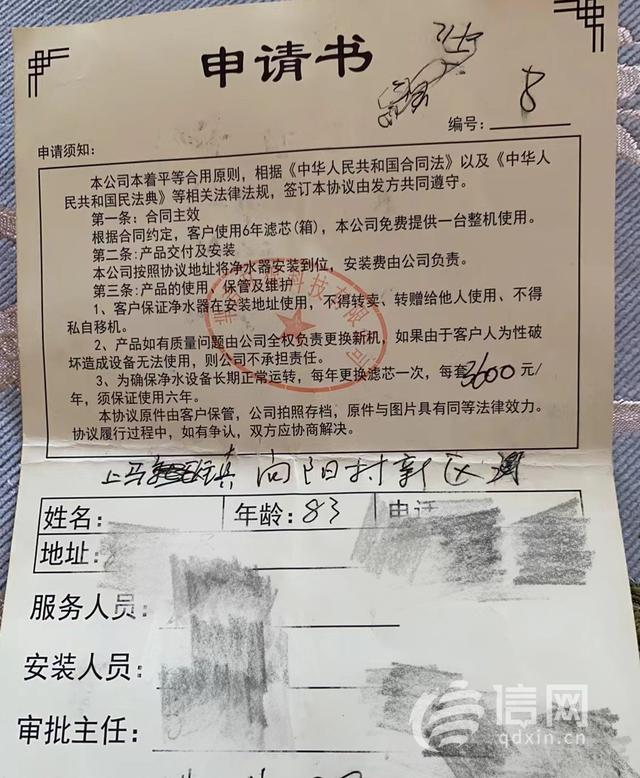 申请书
编号: 8
申请须知:
本公司本着平等合用原则，相据《中华人民共和国合同法》以及《中华人
民共和国民法典》等相关法律法规，签订本协议由发方共同遵守。
第一条: 合同主效
根据合同约定，客户使用6年滤芯(箱)，本公司免费提供一台整机使用。
第二条:产品交付及安装
本公司按照协议地址将净水器安装到位，安装费由公司负责。
第三条:产品的使用，保管及维护
1、客户保证净水器在安装地址使用，不得转卖、转赠给他人使用、不得
私自移机。
2、产品如有质量问题由公司全权负责更换新机，如果由于客户人为性破
坏造成设备无法使用，则公司不承担责任。
3、为确保净水设备长期正常运转，每年更换滤芯一次，每套3600元/
年，须保证使用六年。
本协议原件由客户保管，公司拍照存档，原件与图片具有同等法律效力。
协议履行过程中，如有争认，双方应协商解决。
上马 向阳村新区
姓名: 年龄: 83 电话
地址:
服务人员:
安装人员:
审批主任:
信网
qdxin.cn